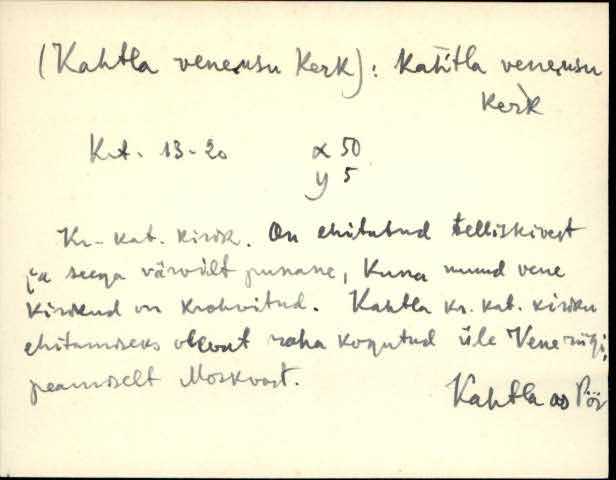 (Kahtla veneusu Kerk): Kahtla veneusu
Kerk
Krt. 13-20 x 50
y 5
Kr.-kat. kirik. On ehitatud telliskivest
ja seega värvilt punane, kuna muud vene
kirikud on krohvitud. Kahtla kr. kat. kiriku
ehitamiseks olevat raha kogutud üle Veneriigi,
peamiselt Moskvast.
Kahtla as Pöi